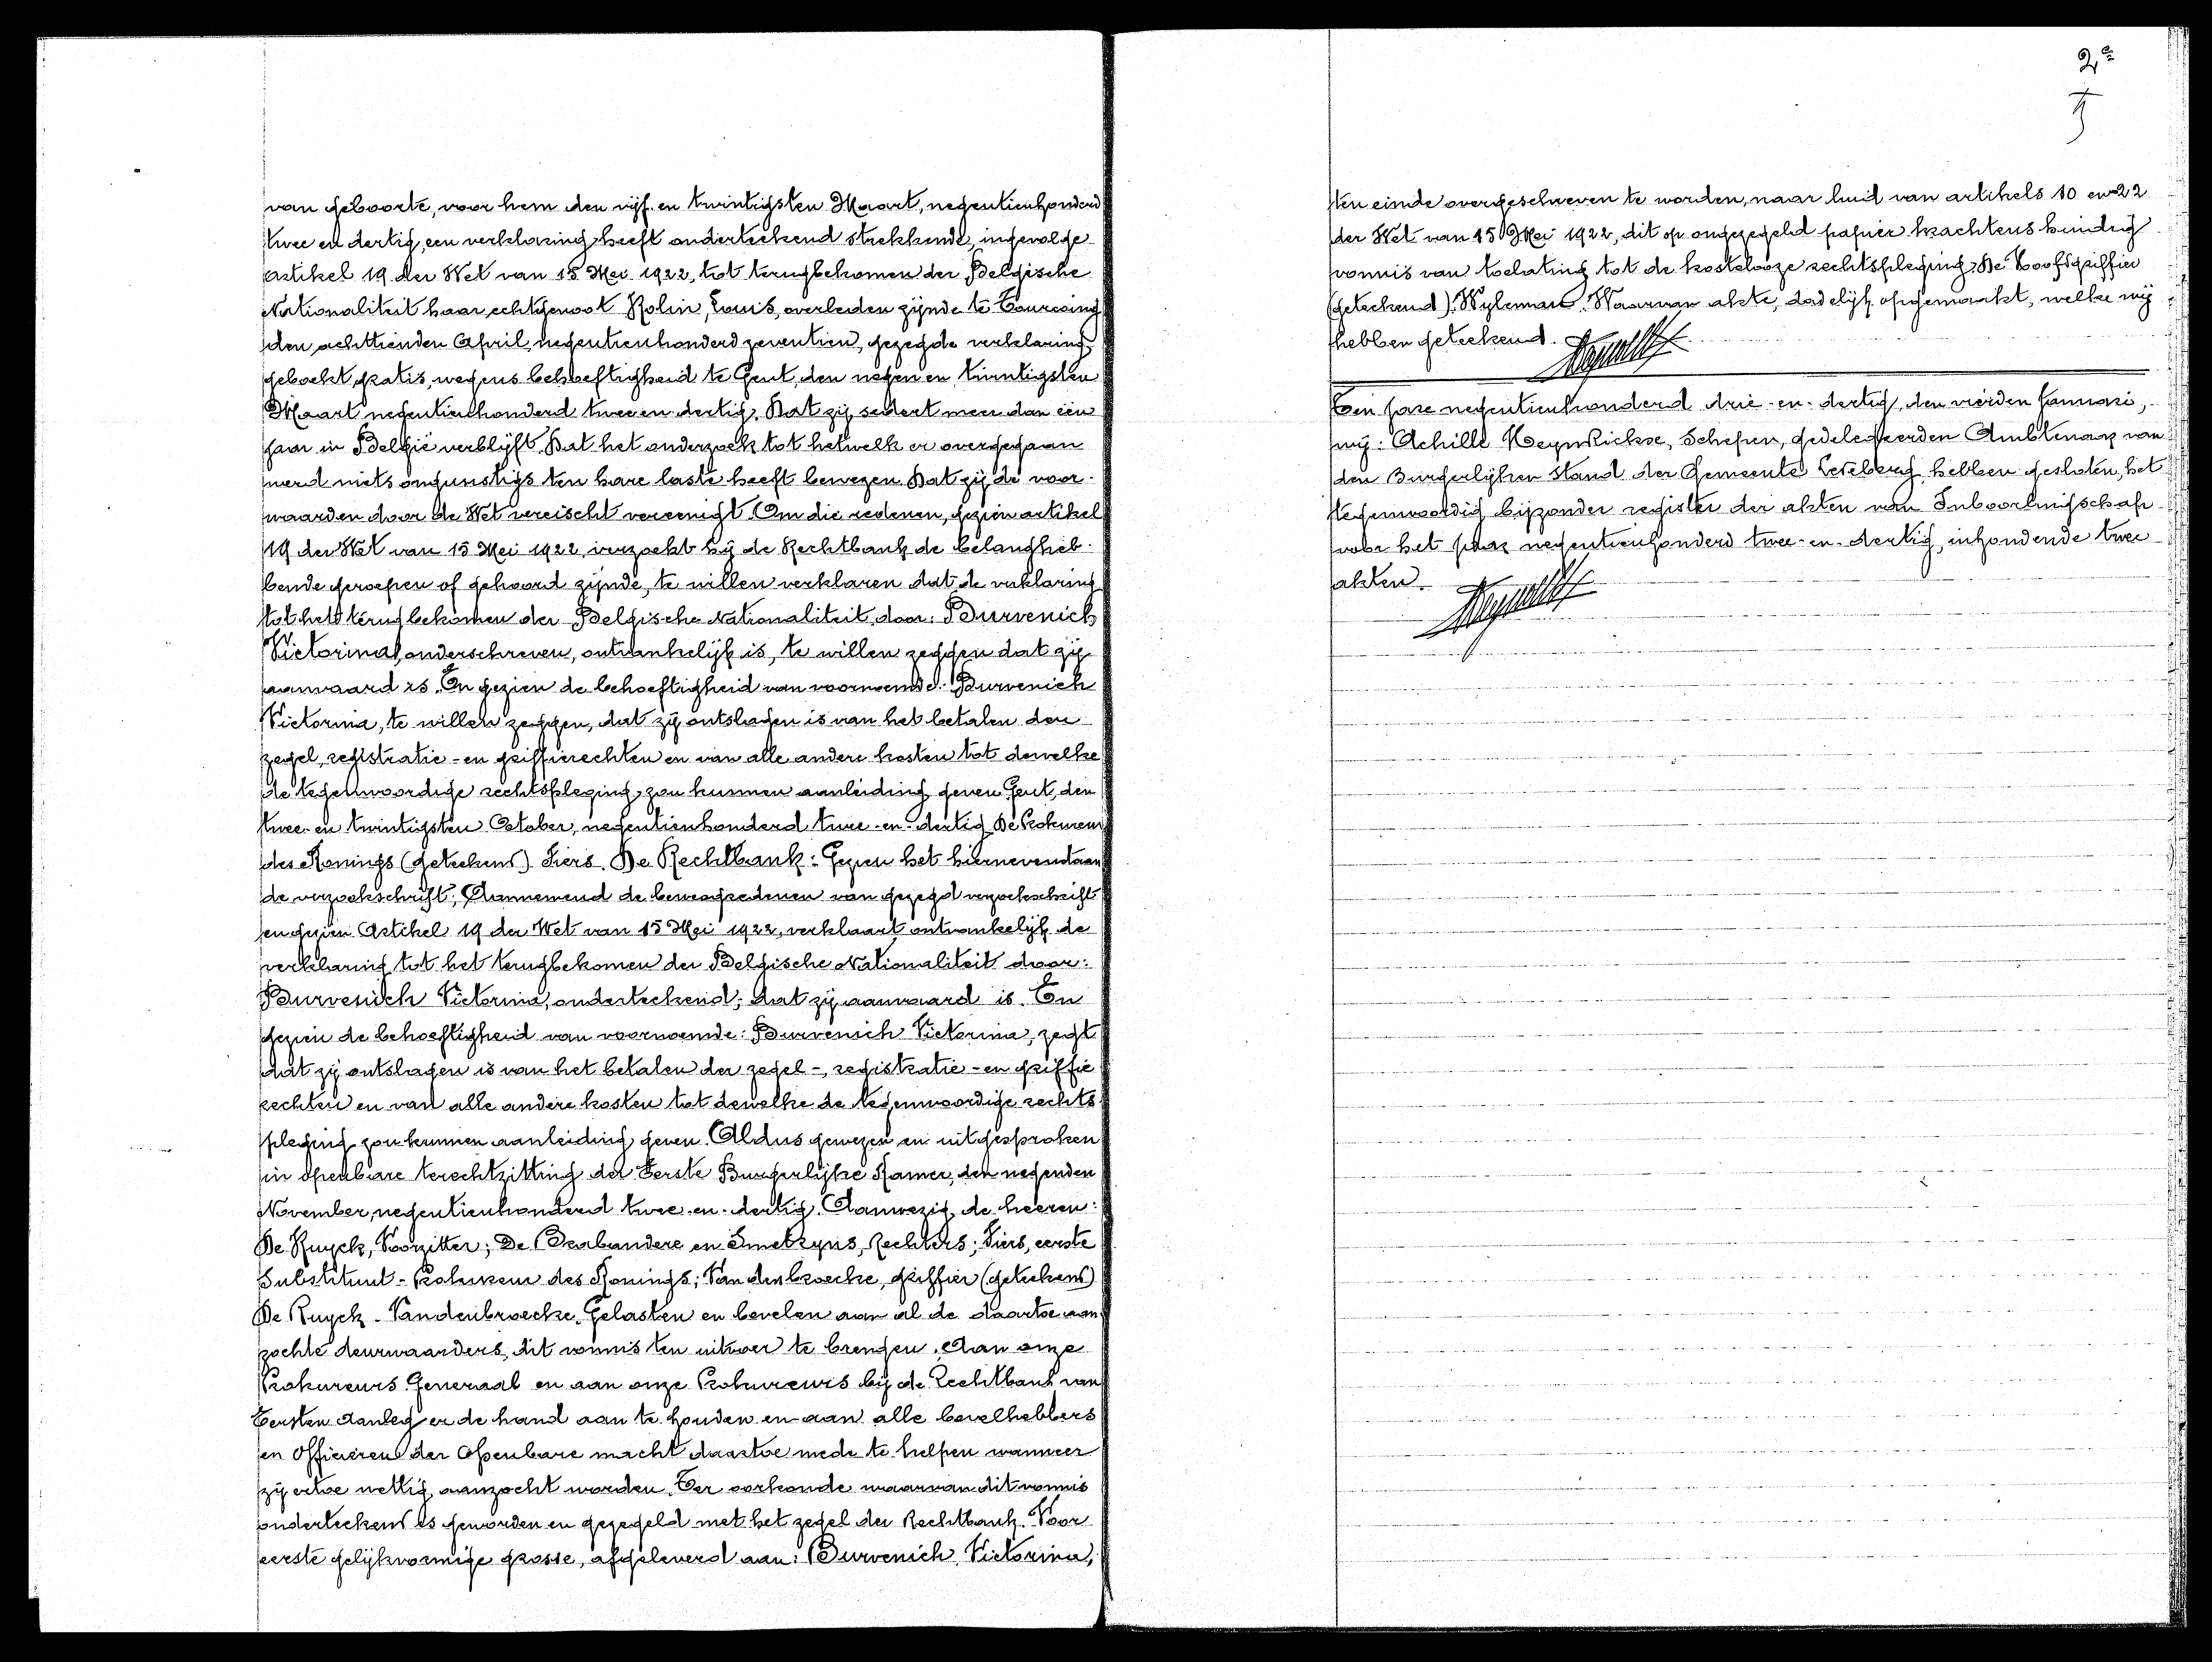 van geboorte, voor hem den vijf en twintigsten Maart, negentienhonderd
twee en dertig, een verklaring heeft onderteekend strekkende, ingevolge
artikel 19 der Wet van 15 Mei 1922, tot terugbekomen der Belgische
Nationaliteit haar echtgenoot Rolin, Louis, overleden zijnde te Tourcoing
den achttienden April, negentienhonderd zeventien, gezegde verklaring
geboekt, gratis, wegens behoeftigheid te Gent, den negen en twintigsten
Maart negentienhonderd twee en dertig. Dat zij sedert meer dan een
jaar in België verblijft. Dat het onderzoek tot hetwelk er overgegaan
werd niets ongunstigs ten hare laste heeft bewezen. Dat zij de voor-
waarden door de Wet vereischt vereenigt. Om die redenen, gezien artikel
19 der Wet van 15 Mei 1922, verzoekt hij de Rechtbank de belangheb-
bende geroepen of gehoord zijnde, te willen verklaren dat de verklaring
tot het terugbekomen der Belgische Nationaliteit, door: Burvenich
Victorina, onderschreven, ontvankelijk is, te willen zeggen dat zij
aanvaard is. En gezien de behoeftigheid van voornoemde: Burvenich
Victorina, te willen zeggen, dat zij ontslagen is van het betalen der
zegel, registratie- en griffierechten en van alle andere kosten tot dewelke
de tegenwoordige rechtspleging zou kunnen aanleiding geven. Gent, den
twee- en twintigsten October, negentienhonderd twee-en-dertig. De Prokureur
des Konings (geteekend) Fiers. De Rechtbank: Gezien het hiernevenstaan
de verzoekschrift; Aannemend de beweegredenen van gezegd verzoekschrift
en gezien Artikel 19 der Wet van 15 Mei 1922, verklaart ontvankelijk de
verklaring tot het terugbekomen der Belgische Nationaliteit door:
Burvenich Victorina, onderteekend; dat zij aanvaard is. En
gezien de behoeftigheid van voornoemde: Burvenich Victorina, zegt
dat zij ontslagen is van het betalen der zegel-, registratie- en griffie
rechten en van alle andere kosten tot dewelke de tegenwoordige rechts
pleging zou kunnen aanleiding geven. Aldus gewezen en uitgesproken
in openbare terechtzitting der Eerste Burgerlijke Kamer, den negenden
November, negentienhonderd twee-en-dertig. Aanwezig de heeren:
De Ruyck, Voorzitter; De Brabandere en Smetryns, Rechters; Fiers, eerste
Substituut-Prokureur des Konings; Van den broecke, griffier (geteekend)
De Ruyck - Vandenbroecke. Gelasten en bevelen aan al de daartoe aan
zochte deurwaarders, dit vonnis ten uitvoer te brengen. Aan onze
Prokureurs Generaal en aan onze Prokureurs bij de Rechtbank van
Eersten Aanleg er de hand aan te houden en aan alle bevelhebbers
en Officieren der Openbare macht daartoe mede te helpen wanneer
zij ertoe wettig aanzocht worden. Ter oorkonde waarvan dit vonnis
onderteekend is geworden en gezegeld met het zegel der Rechtbank. Voor
eerste gelijkvormige grosse, afgeleverd aan: Burvenich Victorina,
2e
ten einde overgeschreven te worden, naar luid van artikels 10 en 22
der Wet van 15 Mei 1922, dit op ongezegeld papier krachtens kundig
vonnis van toelating tot de kostelooze rechtspleging. De Hoofdgriffier
(geteekend) Wyleman. Waarvan akte, dadelijk opgemaakt, welke wij
hebben geteekend.
Een jare negentienhonderd drie-en-dertig, den vierden Januari,
wij: Achille Heynrickse, Schepen, gedelegeerden Ambtenaar van
den Burgerlijken Stand der Gemeente Ledeberg hebben gesloten, het
tegenwoordig bijzonder register der akten van Inboorlingschap
voor het jaar negentienhonderd twee-en-dertig, inhoudende twee
akten.